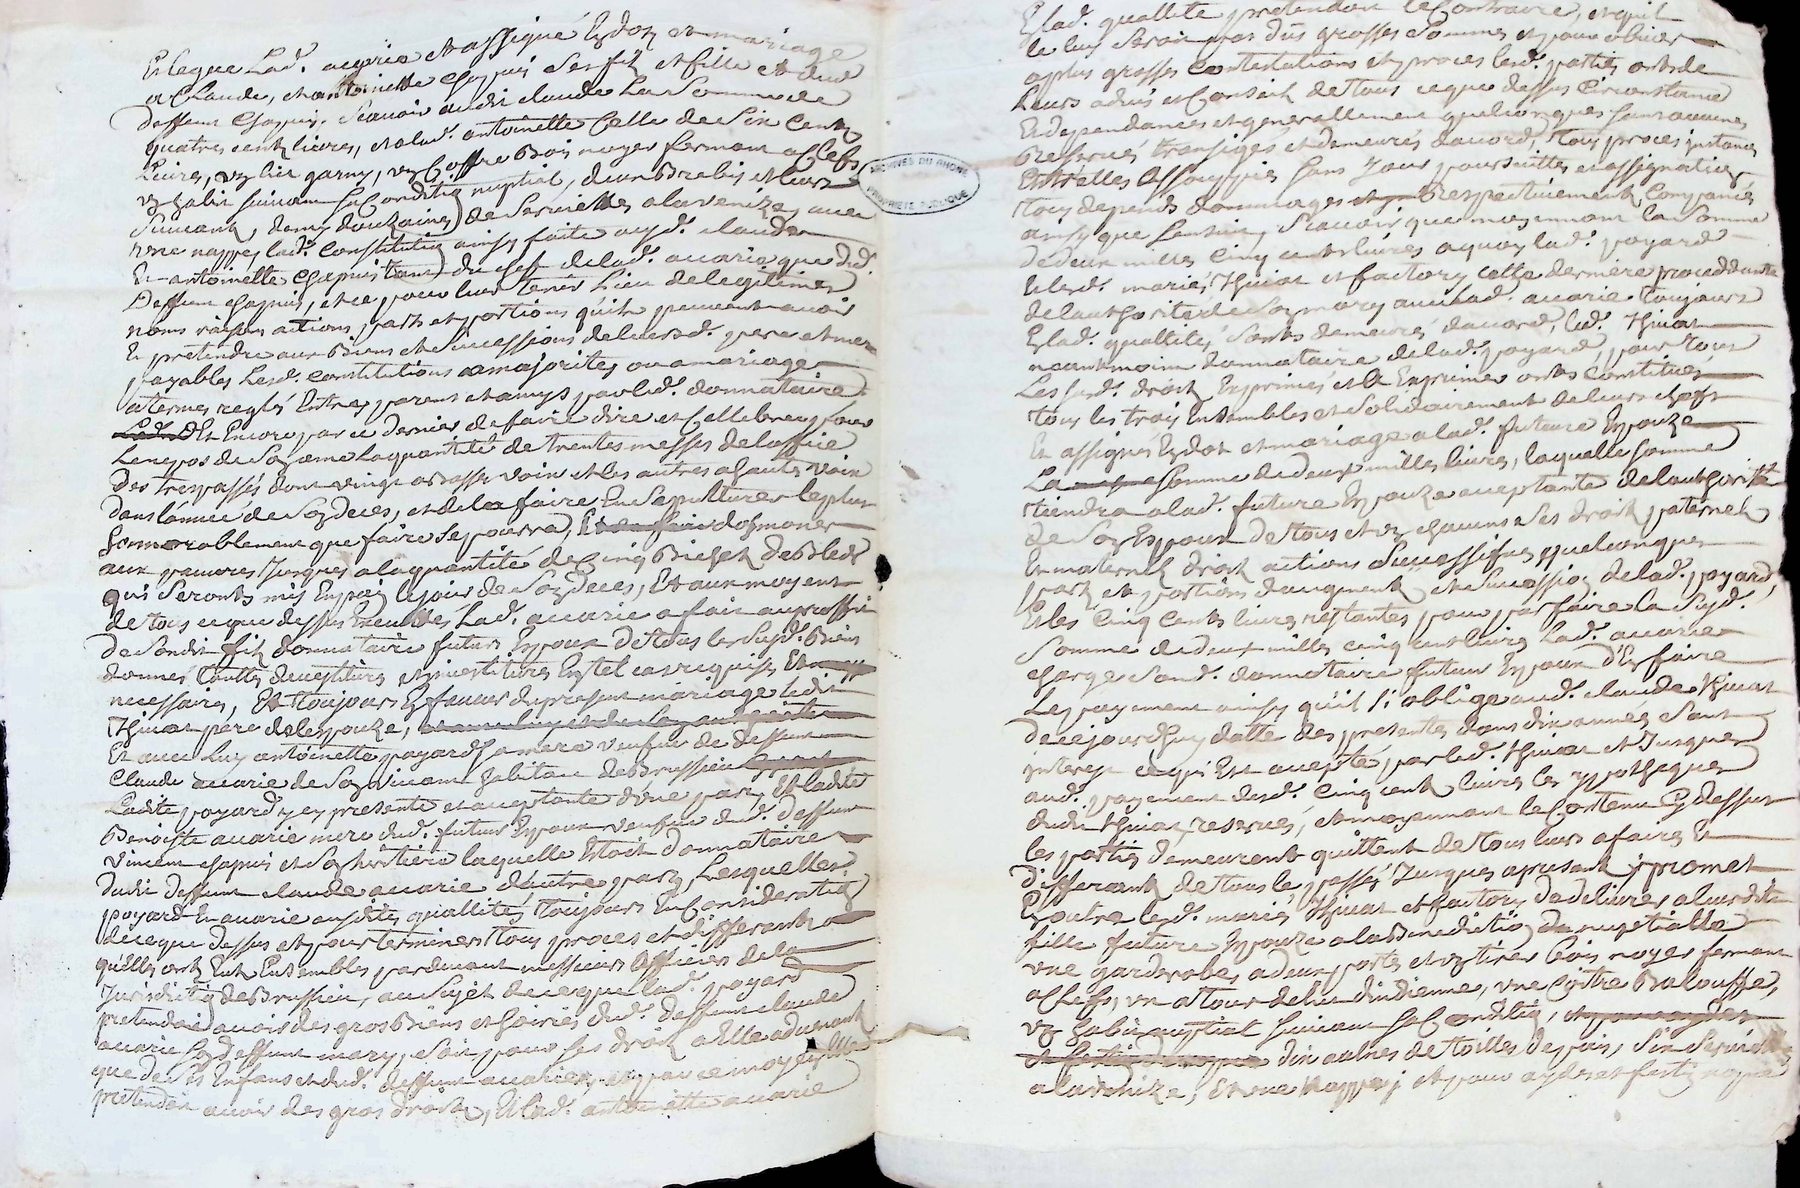 Et leque Lad. avarie et assigné En dot et mariage
a Claude, et antoinette chapuis ses fils et fille et dud
deffunt chapuis. Scavoir audit claude La Somme de
quatre cents livres, et alad. antoinette Celle de Six Cents
livres, un lict garny, un Coffre Bois noyer fermant a Clefs,
un habit suivant sa Condition nuptial, deux Brebis et leurs
Suivants, demy douzaine de Serviettes a la venize, avec
une nappe, lad. Constitution ainsy faite auxd. claude
Et antoinette Chapuis tant du chef de lad. avarie que dud.
Deffunt chapuis, et ce pour leur tenir Lieu de legitimes
noms raisons actions, parts et portions quils peuvent avoir
Et pretendre aux Biens et successions de leursd. pere et mere
payables Lesd. constitutions a majorités ou a mariage
a termes reglés Entre parens et amys par led. donnataire.
Et Encore par ce dernier de faire dire et Cellebrer pour
Le repos de Son ame La quantité de trentes messes de loffice
Des trespassés dont vingt a Basse voix et les autres a haute voix
dans l'année de Son deces, et de la faire Ensepulturer le plus
honnorablement que faire se pourra, daumoner
aux pauvres Jusques a la quantité de Cinq Bichets de Bled
qui Seronts mis En pain le jour de Son deces, Et aux moyent
de tous ce que dessus Lad. avarie a fait au proffit
de Sondit fils donnataire futur Epoux de tous les Susd. Biens
donnés touttes devestitures et investitures En tel cas requises Et
necessaires, Et toujours En faveur du present mariage ledit
Thivat pere de lespouze,
Et avec Luy antoinette poyard Sa mere veufve de deffunt
Claude avarie de Son vivant habitant de Brussieu
Ladite poyard y presente et acceptante d'une part, Et ladite
Benoiste avarie mere dud. futur Epoux veufve dud. deffunt
vincent chapuis et Son heritiere laquelle Estoit donnataire
dudit deffunt claude avarie d'autre part, Lesquelles
poyard Et avarie ausdites quallités toujours En Consideration
de ce que dessus et pour terminer tous proces et differants
qu'Elles onts Eut Ensembles pardevant messieurs les officiers de la
Jurisdiction de Brussieu, au Sujet de ce que lad. poyard
pretendoit avoir des gros Biens et hoiries dud. deffunt claude
avarie Son deffunt mary, Soit pour ses droits a Elle advenants
que de Ses Enfans et dud. deffunt avarie, et par ce moyen Elle
pretendoit avoir des gros droits, Et lad. antoinette avarie
En lad. quallité pretendant le Contraire, et qu'il
ne luy Seroit pas dus grosses Sommes et pour obvier
a plus grosses Contestations et proces lesd. parties onts de
Leurs advis et Conseils de tous ce que dessus Circonstance
Et dependances et generallement quelconques Sans aucunes
Reserves transigés et demeurés d'accord, tous proces instances
Entrelles Assoupis Sans Jour poursuittes et assignations
tous depends dommages Respectivement Compansés
ainsy que Sensuit, Scavoir que moyennant La Somme
de deux milles Cinq cents livres a quoy lad. poyard
Et lesd. mariés Thivat et factory cette derniere proceddante
de lauthorité de Son mary avec lad. avarie toujours
En lad. quallités Sonts demeurés d'accord, led. Thivat
neantmoins donnataire de lad. poyard, pour tous
Les Susd. droits Exprimés et a Exprimer onts Constitués
tous les trois Ensembles et Solidairement de leurs chefs
Et assignés En dot et mariage a lad. future Epouze
La Somme de deux milles livres, laquelle Somme
tiendra a lad. future Epouze acceptante de lauthorité
de Son Espoux de tous et un chacuns Ses droits paternels
Et maternels droits actions Successifs quelconques
parts et portions daugments et Succession de lad. poyard,
Et les Cinq Cents livres restantes pour parfaire la Susd.
Somme de deux milles cinq cent livres Lad. avarie
charge Sond. donnataire futur Epoux d'En faire
Le payement ainsy qu'il S'oblige aud. claude Thivat
de ce jourdhuy datte des presentes dans dix années Sans
interest ce qui Est accepté par led. Thivat et Jusques
aud. payement desd. Cinq cents livres les hypotheques
dudit Thivat reservés, et moyennant le Contenu Cy dessus
les parties demeuronts quittent de tous leurs affaires Et
differants de tous le passé Jusques a present, promet
En outre lesd. mariés Thivat et factory de delivrer a leurdite
fille future Epouze a la Benediction nuptialle
une garderobe a deux portes et un tiroir bois noyer fermant
a Clefs, un a tour de lict dindienne, une Coitre Balouffe,
un habit nuptial Suivant Sa Condition,
dix aulnes de toilles de pais, Six Serviettes
a la venize, Et une Nappe, et pour aydes et festins nopces